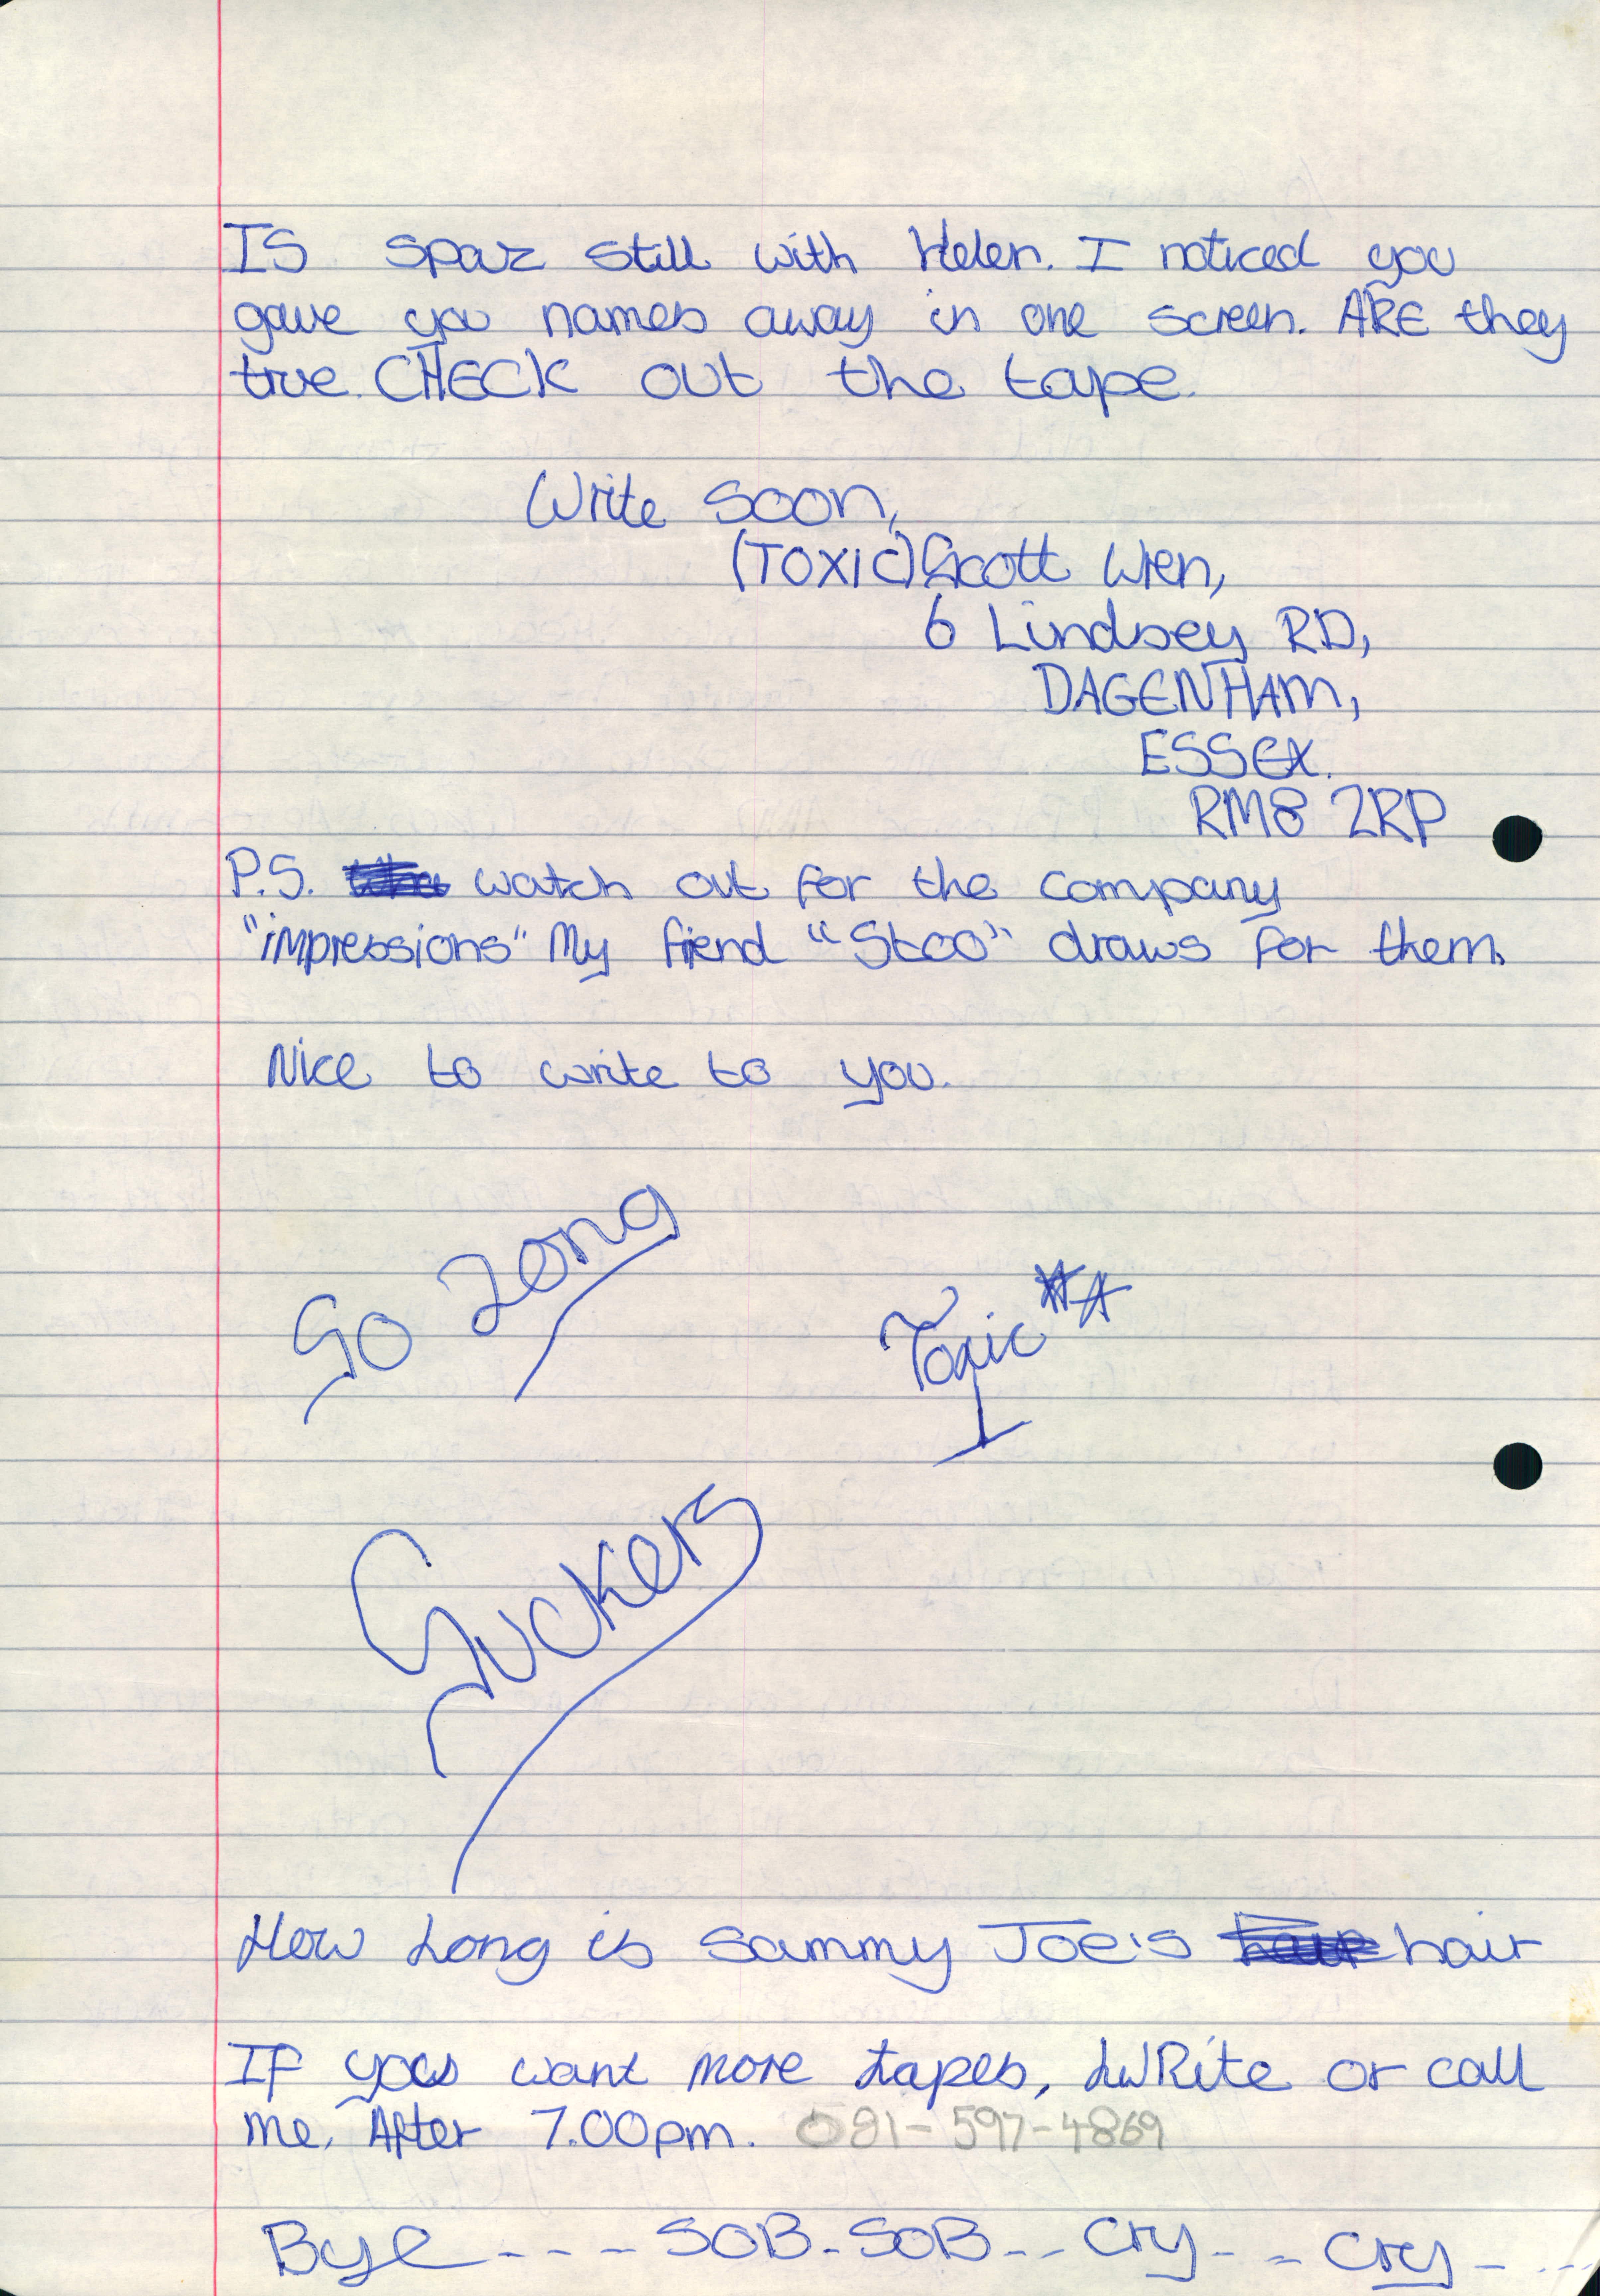 IS spaz still with Helen. I noticed you
gave you names away in one screen. ARE they
true. CHECK out the tape.
Write soon,
(TOXIC) Scott Wren,
6 Lindsey RD,
DAGENHAM,
ESSEX.
RM8 2RP
P.S. watch out for the company
"impressions" My fiend "Stoo" draws for them.
Nice to write to you.
So Long
Toxic
Suckers
How Long is Sammy Joe's hair
IF you want more tapes, WRite or call
me. After 7.00pm. 081-597-4869
Bye - - - - SOB - SOB - - Cry - - - Cry - - - -